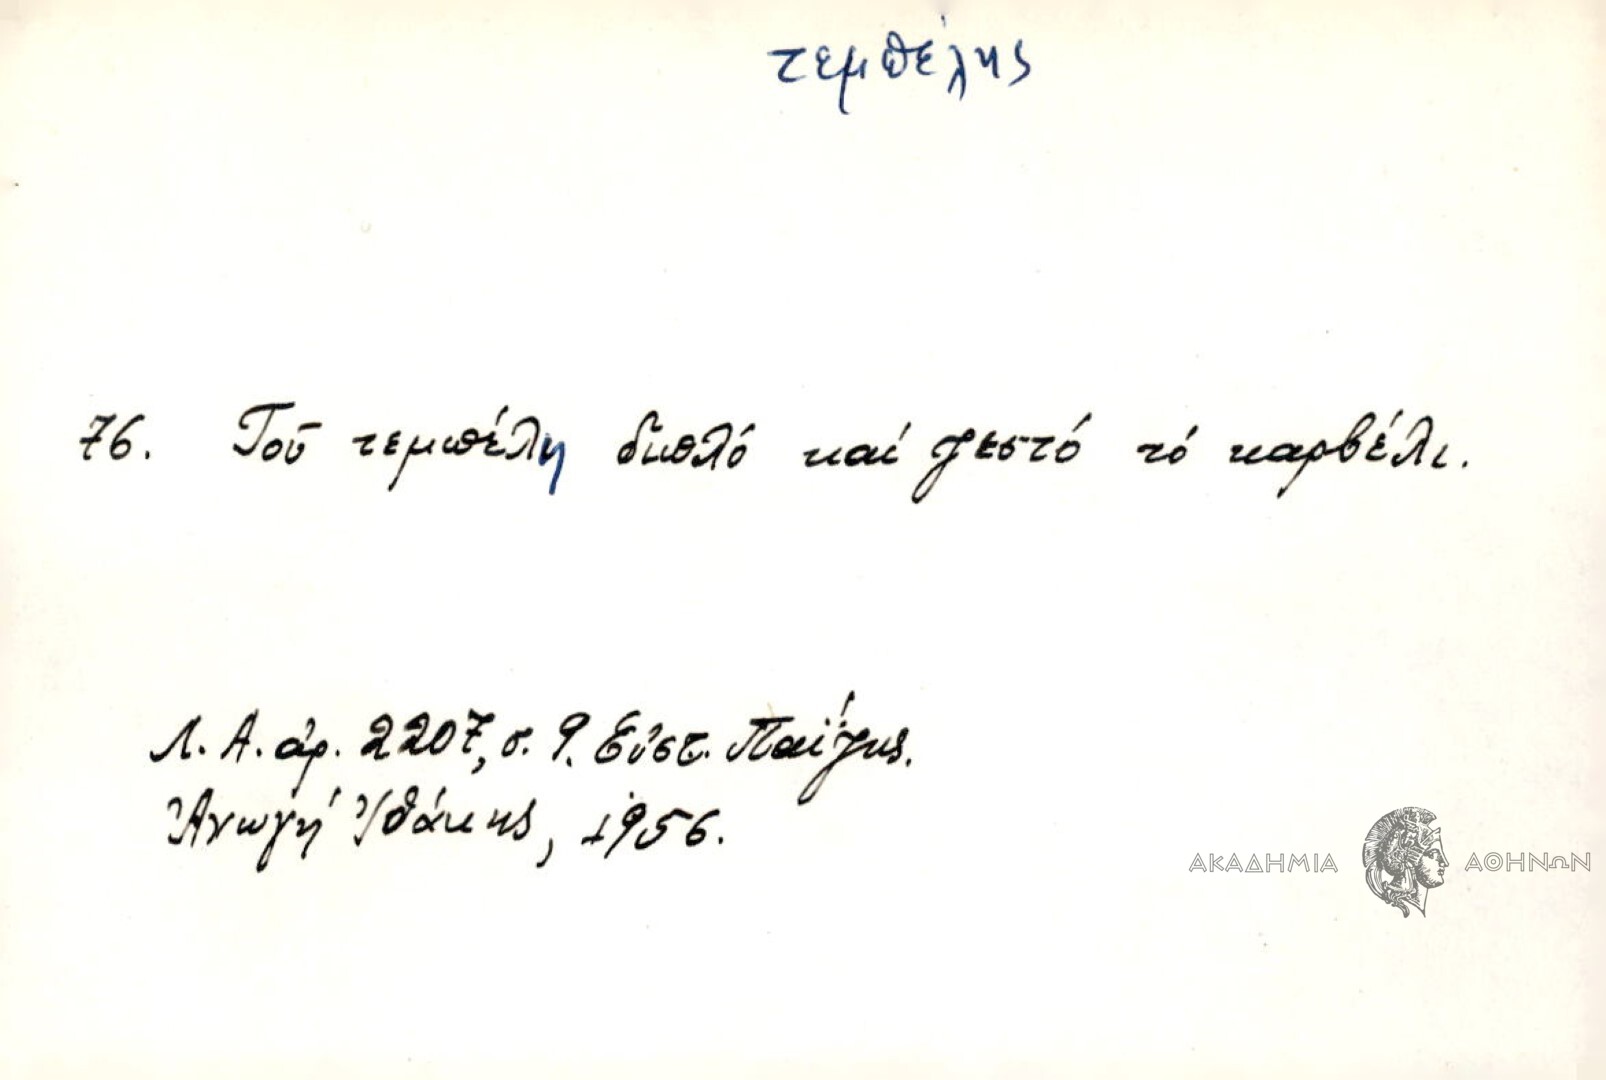 τεμπέλης
76. Τοῦ τεμπέλη διπλό καί ζεστό τό καρβέλι.
Λ. Α. ἀρ. 2207, σ. 9. Εὐστ. Παΐζης.
Ἀνωγή Ἰθάκης, 1956.
ΑΚΑΔΗΜΙΑ ΑΘΗΝΩΝ